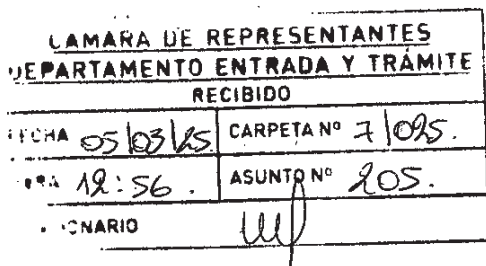 CAMARA DE REPRESENTANTES
DEPARTAMENTO ENTRADA Y TRÁMITE
RECIBIDO
FECHA 05/03/25 CARPETA Nº 7/025.
HORA 12:56. ASUNTO Nº 205.
FUNCIONARIO